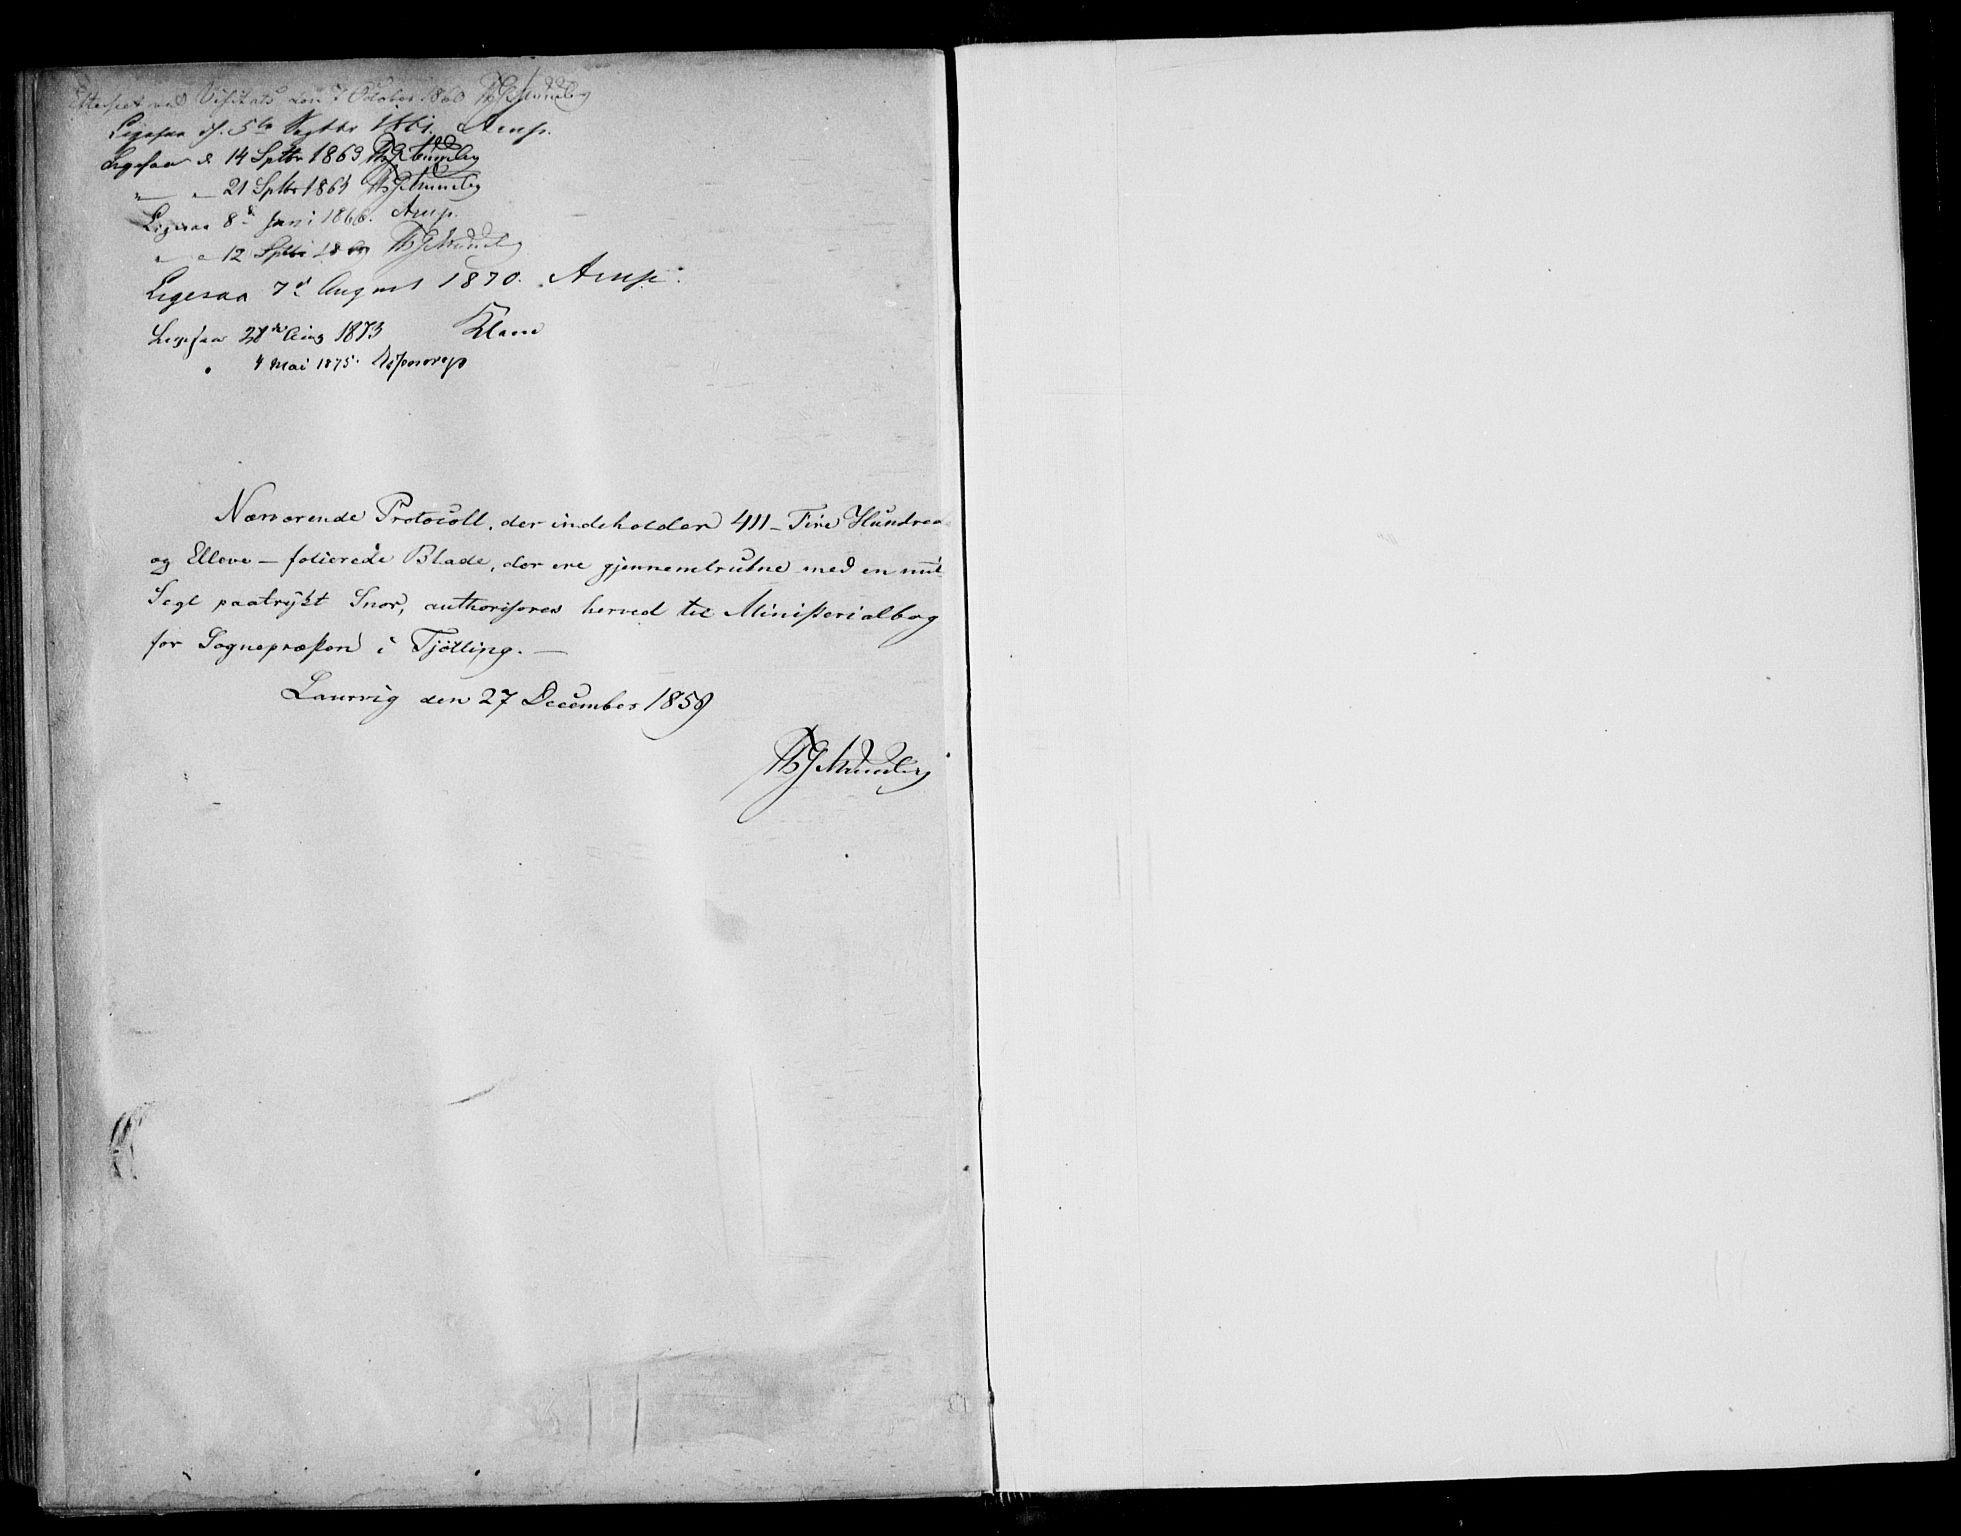 Efterseet ved Visitats den 7 October 1860 Th G Munsley
Ligesaa d. 5te Septbr 1861. Arup.
Ligesaa d 14 Sptbr 1863
" " 21 Sptbr 1864
Ligesaa 8d Juni 1866. Arup.
" " 12 Sptbr
Ligesaa 7d August 1870. Arup.
Ligesaa 28de Aug 1873
" 4 Mai 1875.
Nærværende Protocoll, der indeholder 411 - Fire Hundrede
og Elleve - folierede Blade, der ere gjennemtrukne med en mit
Segl paatrykt Snor, authoriseres herved til Ministerialbog
for Sognepræsten i Tjølling. -
Laurvig den 27 December 1859